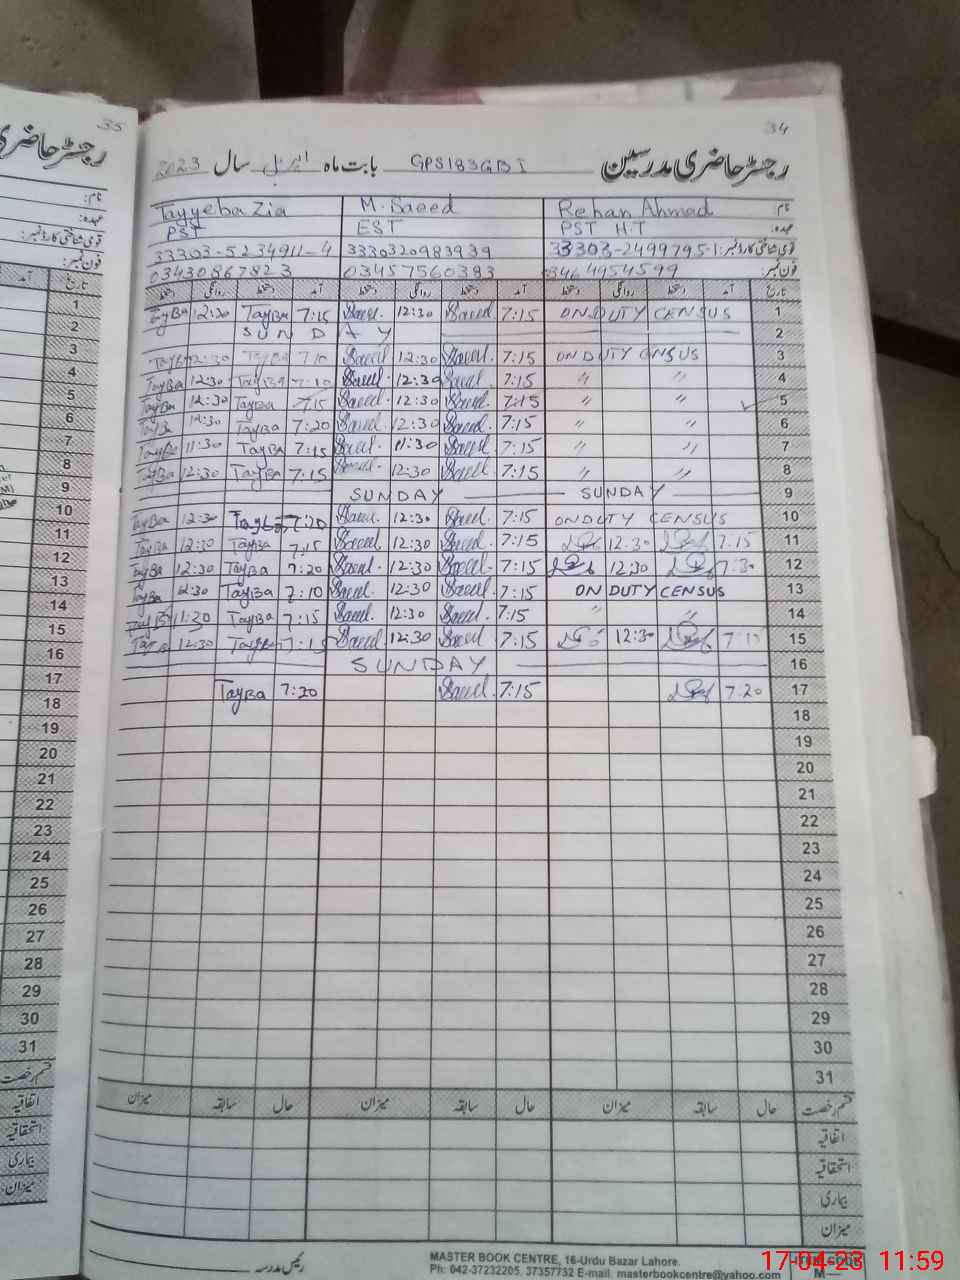 35
34
رجسٹر حاضری مدرسین GPS183GBI بابت ماہ اپریل سال 2023
Tayyeba Zia M. Saeed Rehan Ahmad نام:
PST EST PST H.T عہدہ:
33303-5234911-4 3330320983939 33303-2499795-1 قومی شناختی کارڈ نمبر:
03430867823 03457560383 03464954599 فون نمبر:
دستخط روانگی دستخط آمد دستخط روانگی دستخط آمد دستخط روانگی دستخط آمد تاریخ
1 TayBa 12:30 TayBa 7:15 Saeed 12:30 Saeed 7:15 ON DUTY CENSUS 1
2 SUNDAY 2
3 12:30 TayBa 7:10 Saeed 12:30 Saeed 7:15 ON DUTY CENSUS 3
4 TayBa 12:30 TayBa 7:10 Saeed 12:30 Saeed 7:15 〃 〃 4
5 TayBa 12:30 TayBa 7:15 Saeed 12:30 Saeed 7:15 〃 〃 5
6 12:30 TayBa 7:20 Saeed 12:30 Saeed 7:15 〃 〃 6
7 TayBa 11:30 TayBa 7:15 Saeed 11:30 Saeed 7:15 〃 〃 7
8 TayBa 12:30 TayBa 7:15 Saeed 12:30 Saeed 7:15 〃 〃 8
9 SUNDAY SUNDAY 9
10 TayBa 12:30 TayBa 7:20 Saeed 12:30 Saeed 7:15 ON DUTY CENSUS 10
11 TayBa 12:30 TayBa 7:15 Saeed 12:30 Saeed 7:15 12:30 7:15 11
12 TayBa 12:30 TayBa 7:20 Saeed 12:30 Saeed 7:15 12:30 7:30 12
13 TayBa 12:30 TayBa 7:10 Saeed 12:30 Saeed 7:15 ON DUTY CENSUS 13
14 11:20 TayBa 7:15 Saeed 12:30 Saeed 7:15 〃 〃 14
15 12:30 TayBa 7:15 Saeed 12:30 Saeed 7:15 12:30 7:15 15
16 SUNDAY 16
17 TayBa 7:20 Saeed 7:15 7:20 17
18 18
19 19
20 20
21 21
22 22
23 23
24 24
25 25
26 26
27 27
28 28
29 29
30 30
31 31
میزان سابقہ حال میزان سابقہ حال میزان سابقہ حال قسم رخصت
اتفاقیہ
استحقاقیہ
بیماری
میزان
رئیس مدرسہ
MASTER BOOK CENTRE, 16-Urdu Bazar Lahore.
Ph: 042-37232205, 37357732 E-mail. masterbookcentre@yahoo.com
17-04-23 11:59